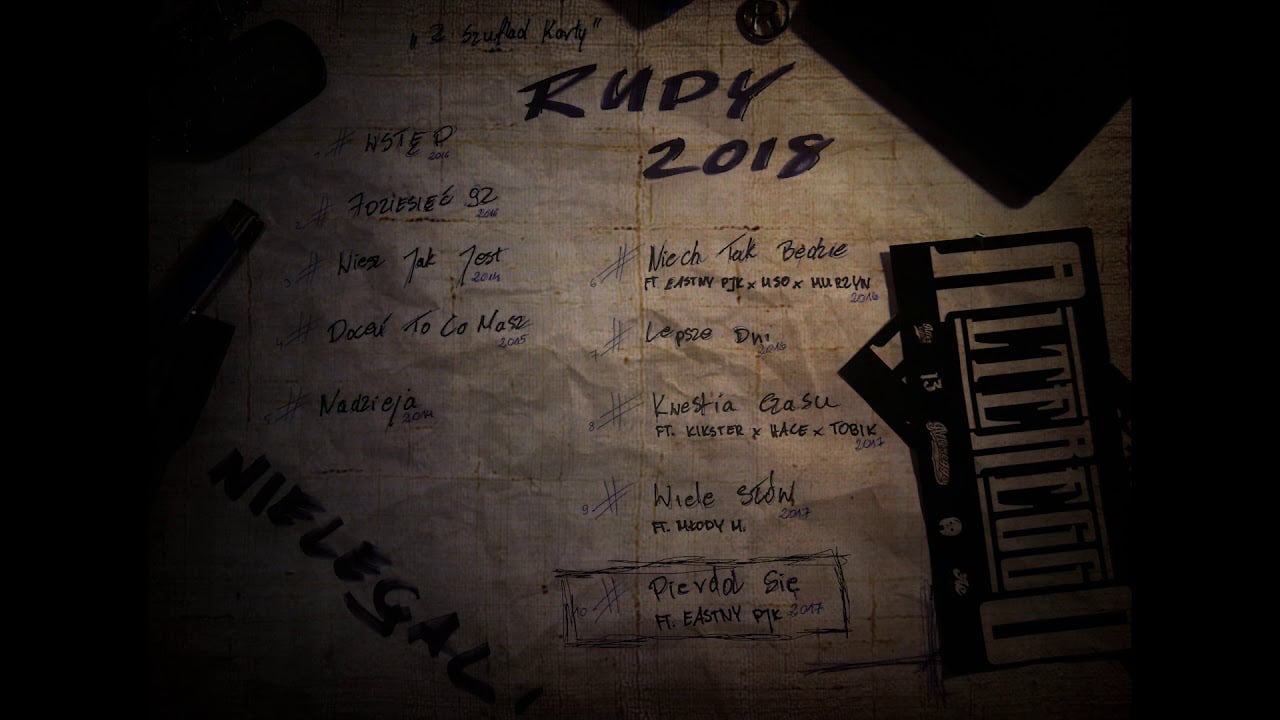 „Z Szuflad Karty"
RUDY
2018
1 # WSTĘP
2016
2 # 7DZIESIĘĆ 92
2016
3 # Wiesz Jak Jest
2014
4 # Doceń To Co Masz
2015
5 # Nadzieja
2014
6 # Niech Tak Będzie
FT EASTNY PJK x USO x MURZYN
2016
7 # Lepsze Dni
2016
8 # Kwestia Czasu
FT. KIKSTER x HACE x TOBIK
2017
9 # Wiele Słów
2017
FT. MŁODY M.
10 # Pierdol Się
FT. EASTNY PJK 2017
NIELEGAL
ALTEREGO
13